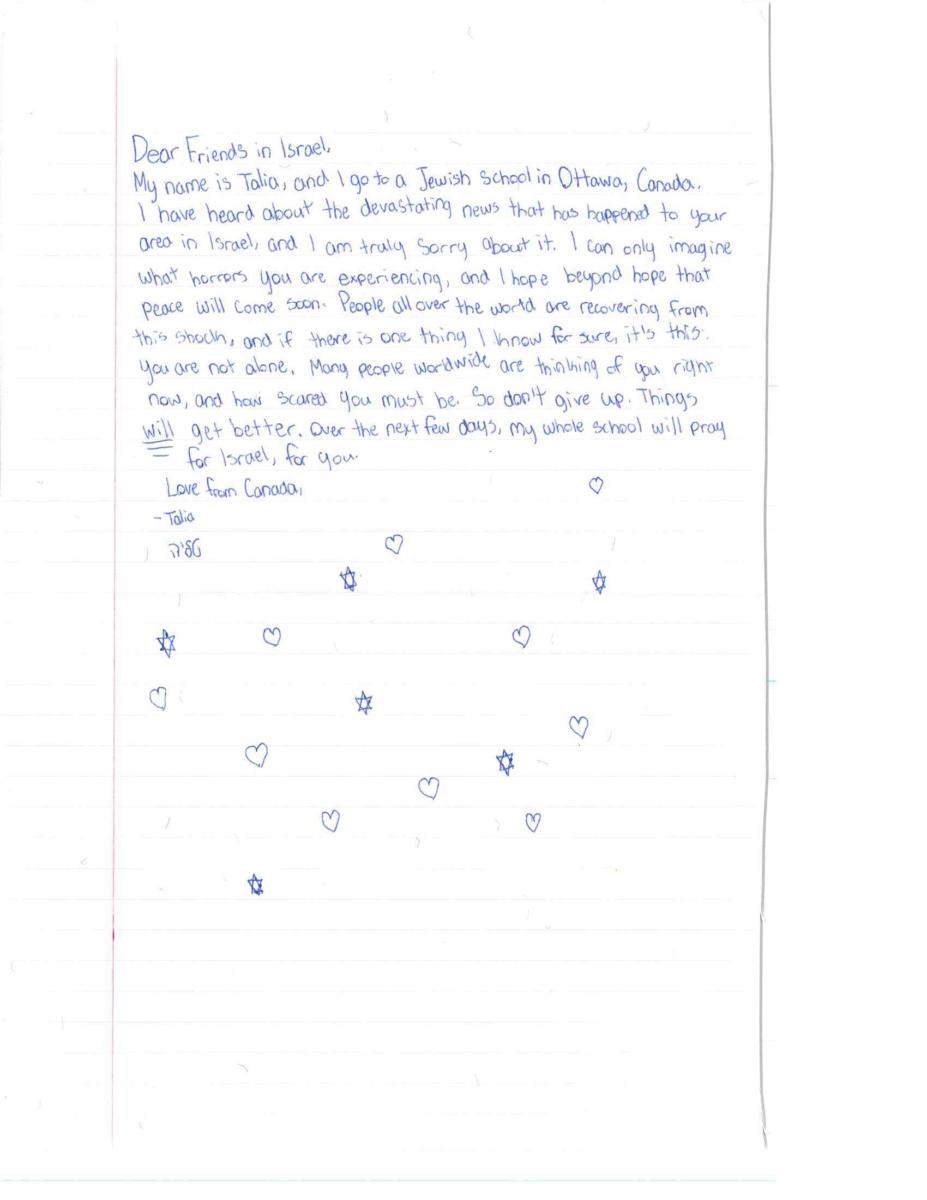 Dear Friends in Israel,
My name is Talia, and I go to a Jewish School in Ottawa, Canada.
I have heard about the devastating news that has happened to your
area in Israel, and I am truly sorry about it. I can only imagine
what horrors you are experiencing, and I hope beyond hope that
peace will come soon. People all over the world are recovering from
this shock, and if there is one thing I know for sure, it's this:
You are not alone. Many people worldwide are thinking of you right
now, and how scared you must be. So don't give up. Things
will get better. Over the next few days, my whole school will pray
for Israel, for you.
Love from Canada,
- Talia
טליה